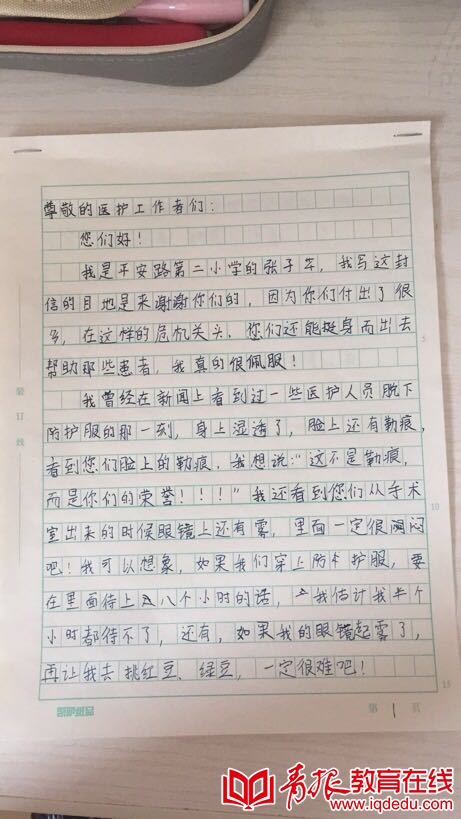 尊敬的医护工作者们:
您们好!
我是平安路第二小学的张子芊,我写这封
信的目地是来谢谢你们的,因为你们付出了很
多,在这样的危机关头,您们还能挺身而出去
帮助那些患者,我真的很佩服!
我曾经在新闻上看到过一些医护人员脱下
防护服的那一刻,身上湿透了,脸上还有勒痕,
看到您们脸上的勒痕,我想说:“这不是勒痕,
而是你们的荣誉!!!”我还看到您们从手术
室出来的时候眼镜上还有雾,里面一定很闷
吧!我可以想象,如果我们穿上防护服,要
在里面待上八个小时的话,我估计我半个
小时都待不了,还有,如果我的眼镜起雾了,
再让我去挑红豆、绿豆,一定很难吧!
装订线
5
10
15
第1页
青报教育在线
www.iqdedu.com